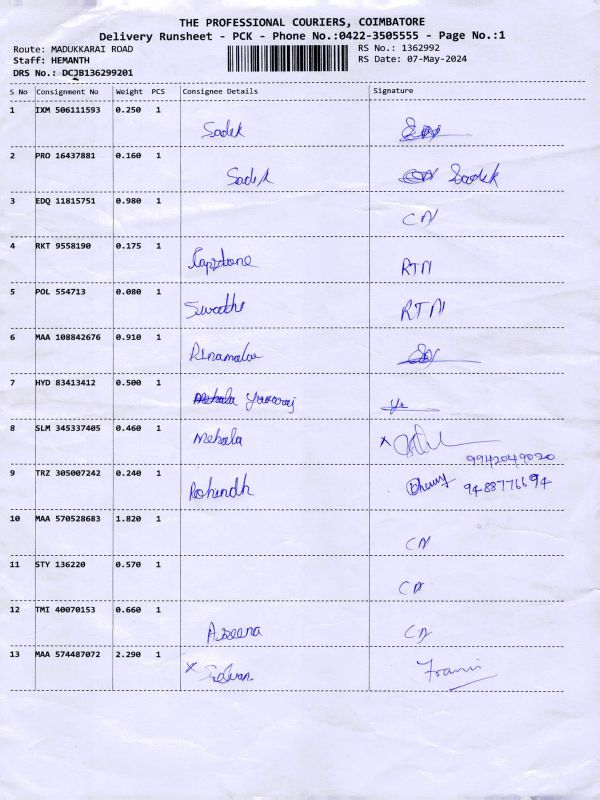 THE PROFESSIONAL COURIERS, COIMBATORE
Delivery Runsheet - PCK - Phone No.:0422-3505555 - Page No.:1
Route: MADUKKARAI ROAD RS No.: 1362992
Staff: HEMANTH RS Date: 07-May-2024
DRS No.: DCJB136299201
S No Consignment No Weight PCS Consignee Details Signature
1 IXM 506111593 0.250 1
Sadek
2 PRO 16437881 0.160 1
Sadek Sadek
3 EDQ 11815751 0.980 1
CN
4 RKT 9558190 0.175 1
Capstone RTN
5 POL 554713 0.080 1
Swathi RTN
6 MAA 108842676 0.910 1
7 HYD 83413412 0.500 1
Mekala Yuvaraj
8 SLM 345337405 0.460 1
Mekala x
9942049020
9 TRZ 305007242 0.240 1
Rohindh 9488776694
10 MAA 570528683 1.820 1
CN
11 STY 136220 0.570 1
CN
12 TMI 40070153 0.660 1
Aseena CN
13 MAA 574487072 2.290 1
x